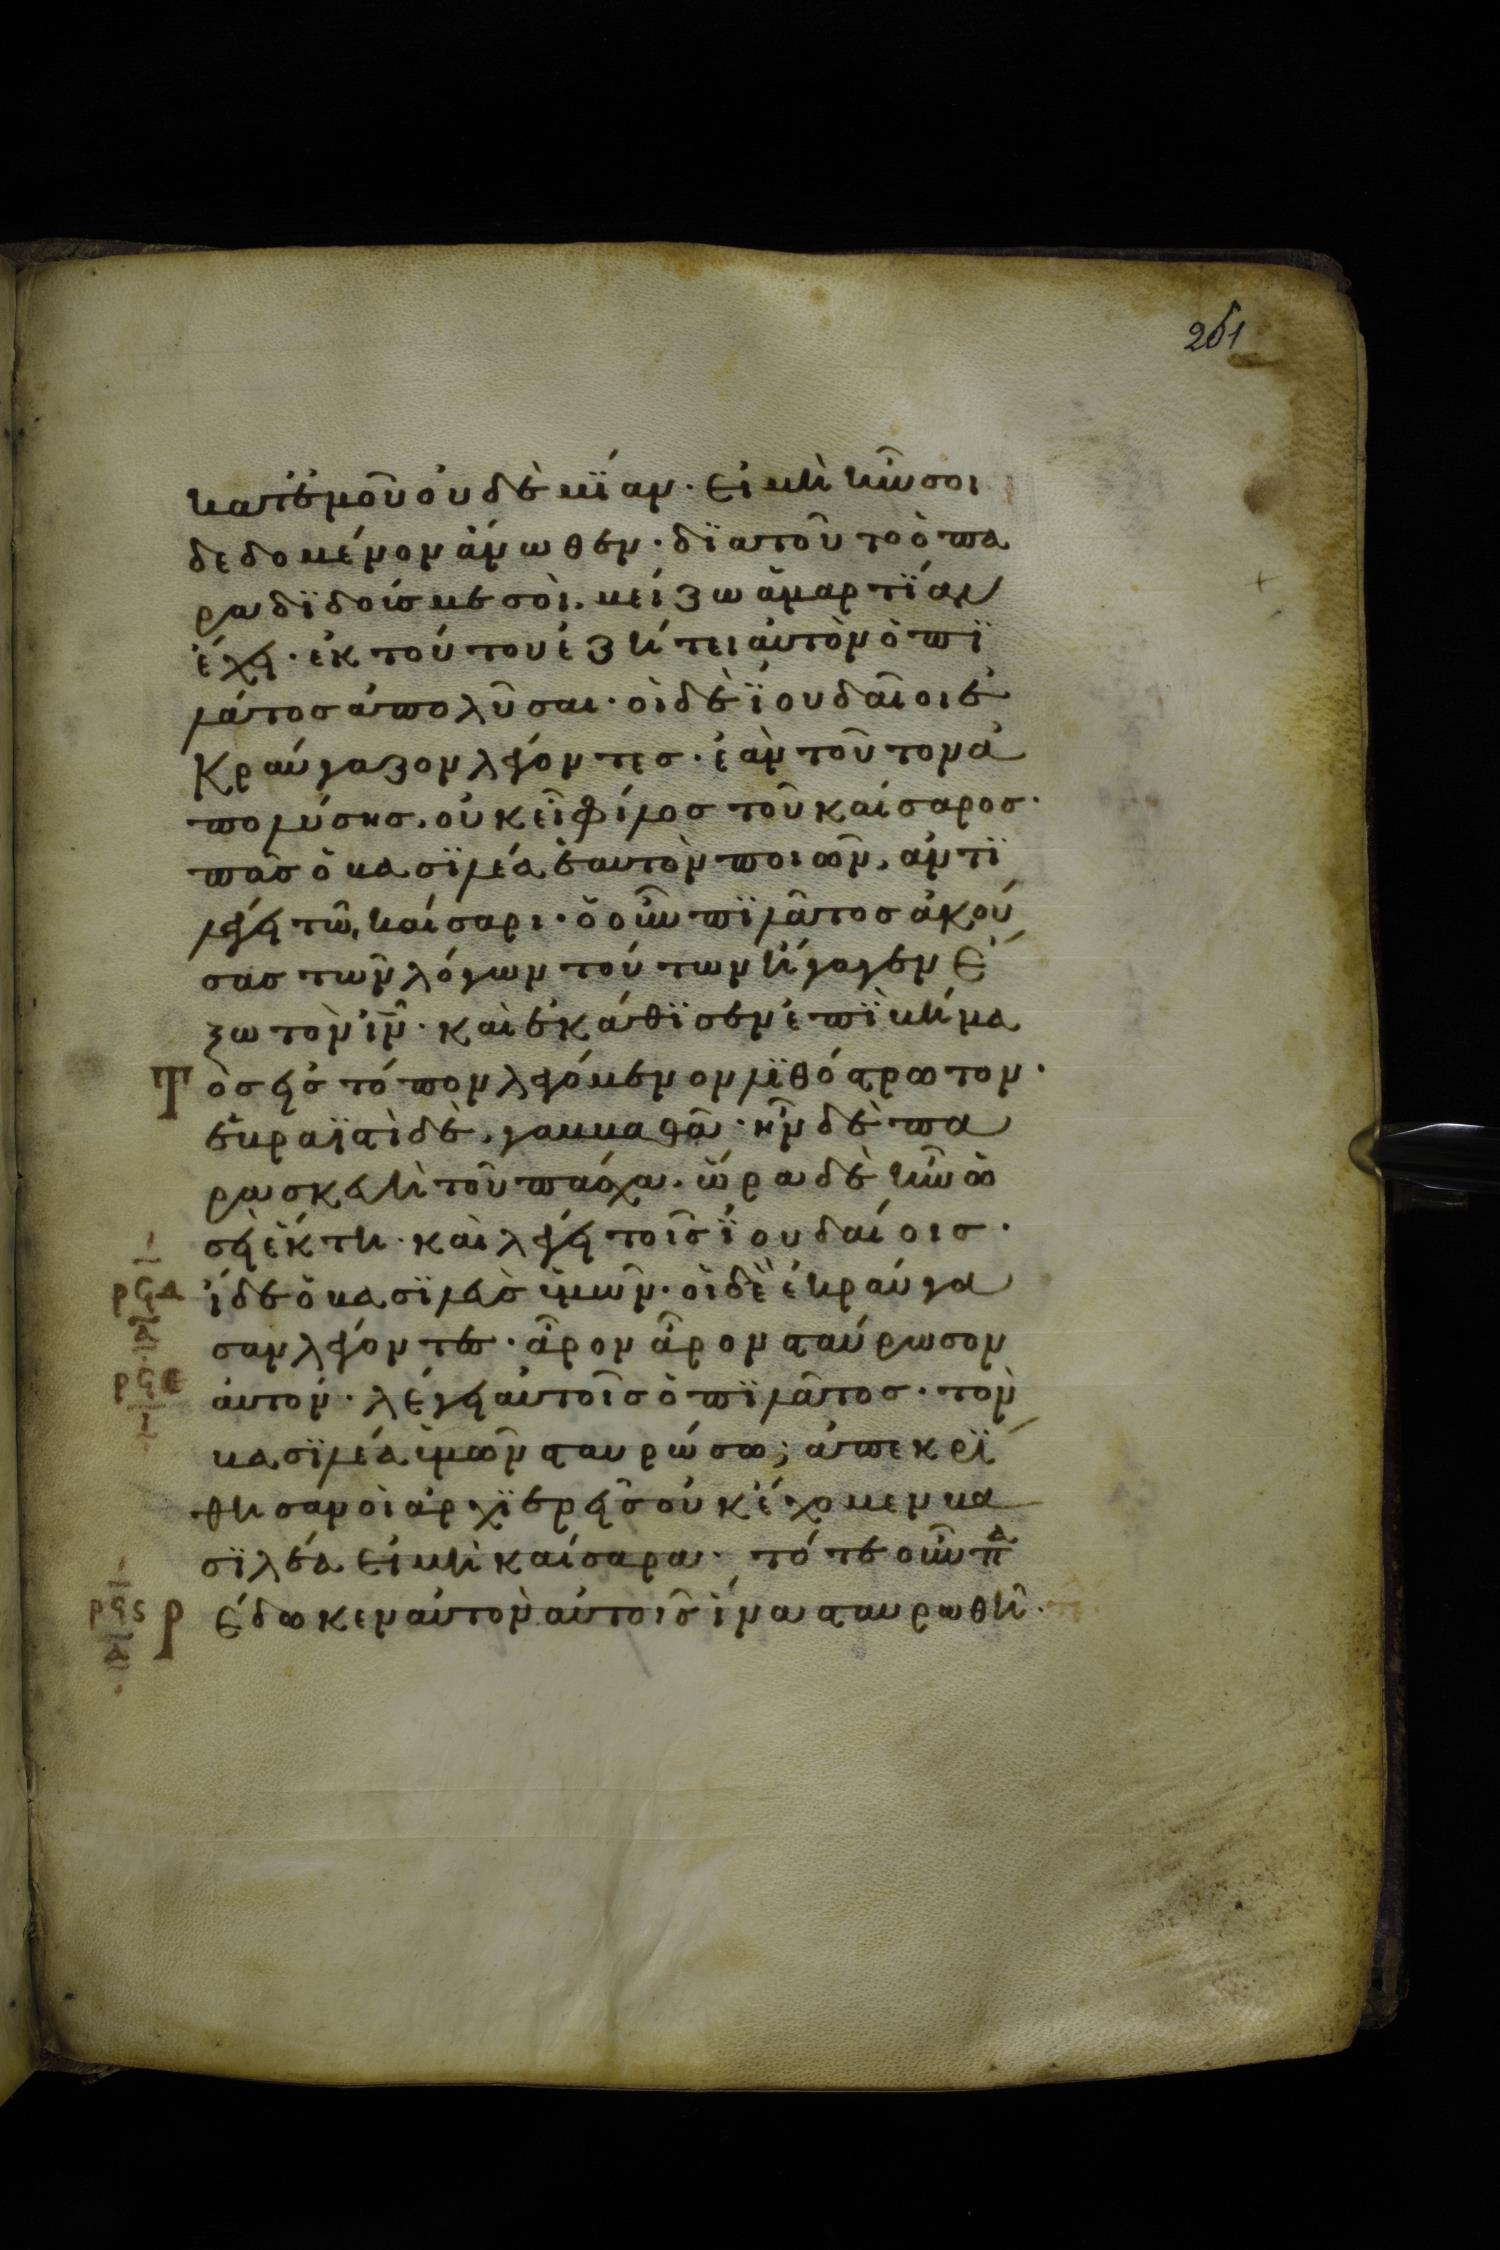 251
κατεμοῦ οὐδε μΐαν· Εἰ μὴ ἦν σοι
δεδομένον ἄνωθεν· δϊατοῦτο ὁ πα
ραδϊδούσ με σοὶ, μείζω ἁμαρτΐαν
ἔχει· ἐκ τούτου ἐζήτει ἀυτὸν ὁ πϊ
λάτοσ ἀπολῦσαι· οἱ δὲ ϊουδαῖοι ἐ
Κραύγαζον λέγοντεσ· ἐὰν τοῦτον ἀ
πολύσησ, οὐκ εἶ φίλοσ τοῦ καίσαροσ·
πᾶσ ὁ βασϊλέα ἑαυτὸν ποιῶν, ἀντϊ
λέγει τῶ, καίσαρι· ὁ οὖν πϊλᾶτοσ ἀκού
σασ τῶν λόγων τούτων ἤγαγεν Ἔ
ξω τὸν ἰν̅· καὶ ἐκάθϊσεν ἐπϊ βήμα
Τ
ὸσ εἰσ τόπον λεγόμενον λϊθόστρωτον·
ἑβραϊστὶ δὲ, γαββαθᾶ· ἦν δὲ πα
ρασκευὴ τοῦ πάσχα· ὥρα δὲ ἦν ὡ
σεὶ ἕκτη· καὶ λέγει τοῖσ ϊουδαίοισ·
ρϟδ
ἴδε ὁ βασϊλεὺσ ὑμῶν· οἱ δὲ ἐκραύγα
σαν λέγοντεσ· ἆρον ἆρον σταύρωσον
ρϟε
ἀυτόν· λέγει αὐτοῖσ ὁ πϊλᾶτοσ· τὸν
βασϊλέα ὑμῶν σταυρώσω; ἀπεκρΐ
θησαν οἱ ἀρχϊερεῖσ οὐκ ἔχομεν βα
σϊλέα Εἰ μὴ καίσαρα· τότε οὖν π
ρϟς
ρ
Ἔδωκεν αὐτὸν αὐτοῖσ ἵνα σταυρωθῆ·